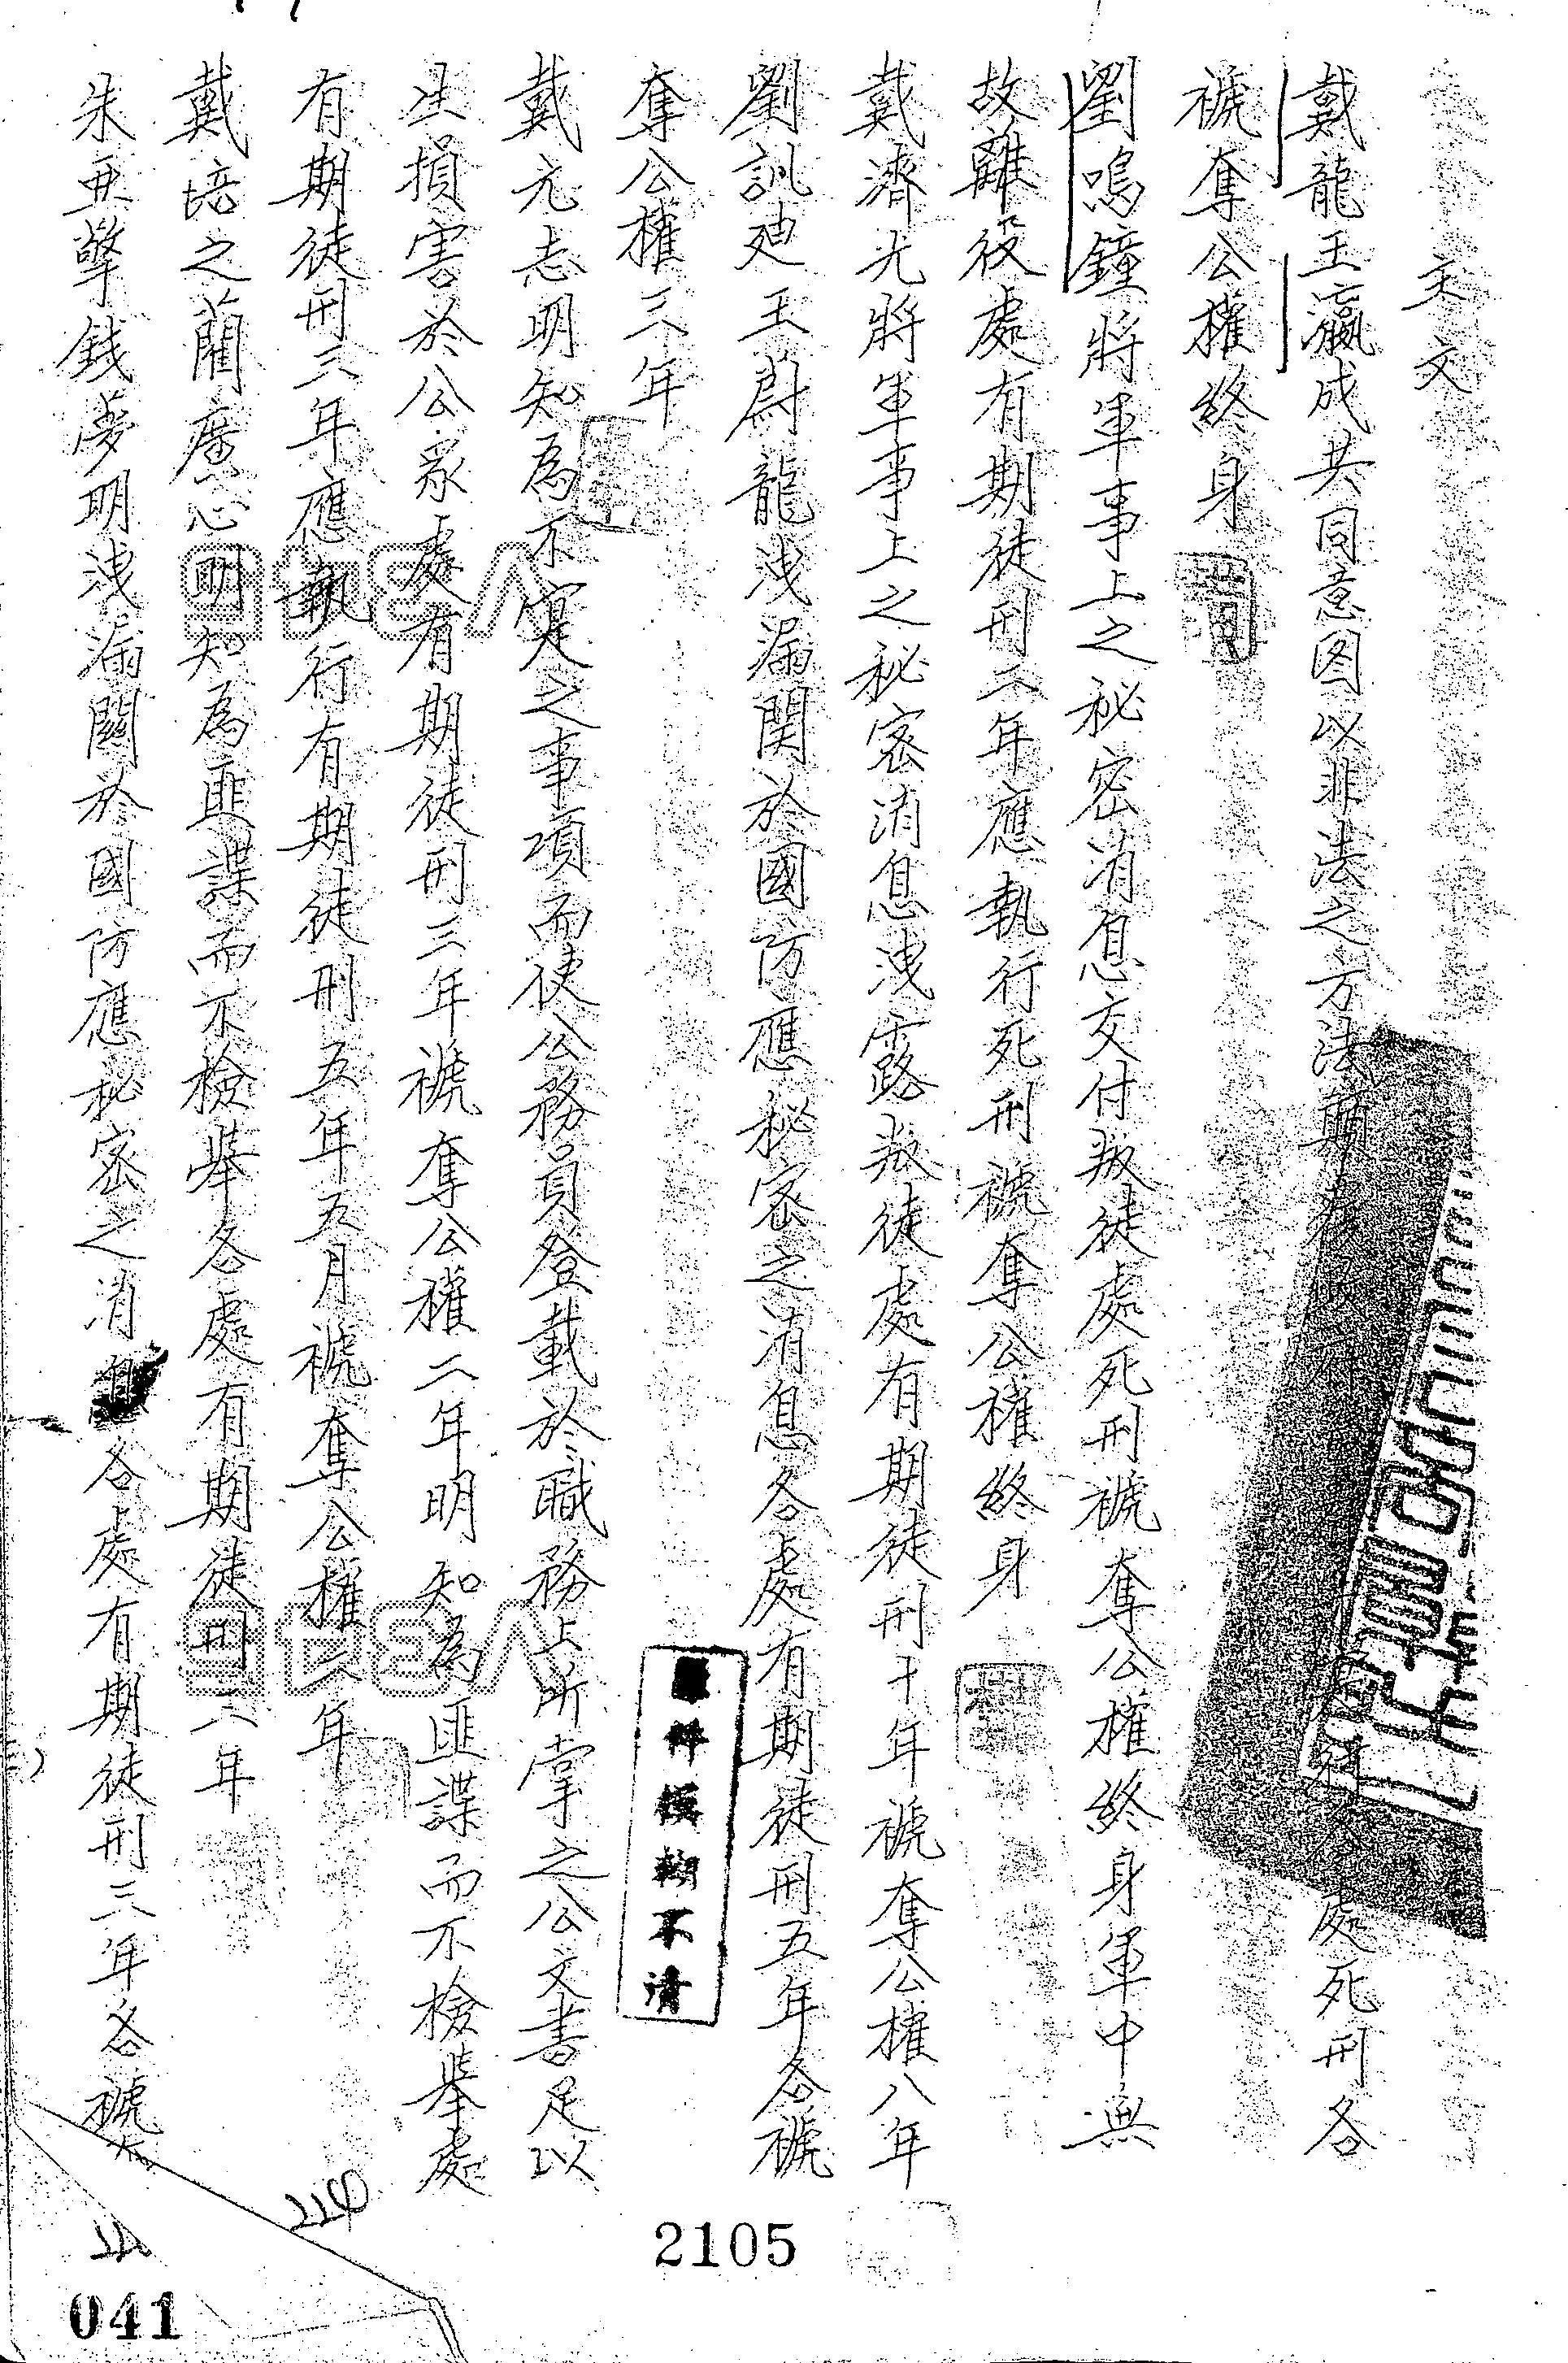 主文
戴龍王瀛成共同意图以非法之方法顛覆政府處死刑各
褫奪公權終身
劉鳴鐘將軍事上之秘密消息交付叛徒處死刑褫奪公權終身軍中無
故離役處有期徒刑二年應執行死刑褫奪公權終身
戴濟光將軍事上之秘密消息洩露叛徒處有期徒刑十年褫奪公權八年
劉訓廸王蔚龍洩漏関於國防應秘密之消息各處有期徒刑五年各褫
奪公權三年
戴元志明知為不寔之事項而使公務員登載於職務上所掌之公文書足以
生損害於公眾處有期徒刑三年褫奪公權二年明知為匪諜而不檢舉處
有期徒刑三年應執行有期徒刑五年五月褫奪公權二年
戴培之藺廣心明知為匪諜而不檢舉各處有期徒刑二年
朱亜擎錢夢明洩漏關於國防應秘密之消息各處有期徒刑三年各褫
原件模糊不清
V345
V345
2105
214
041